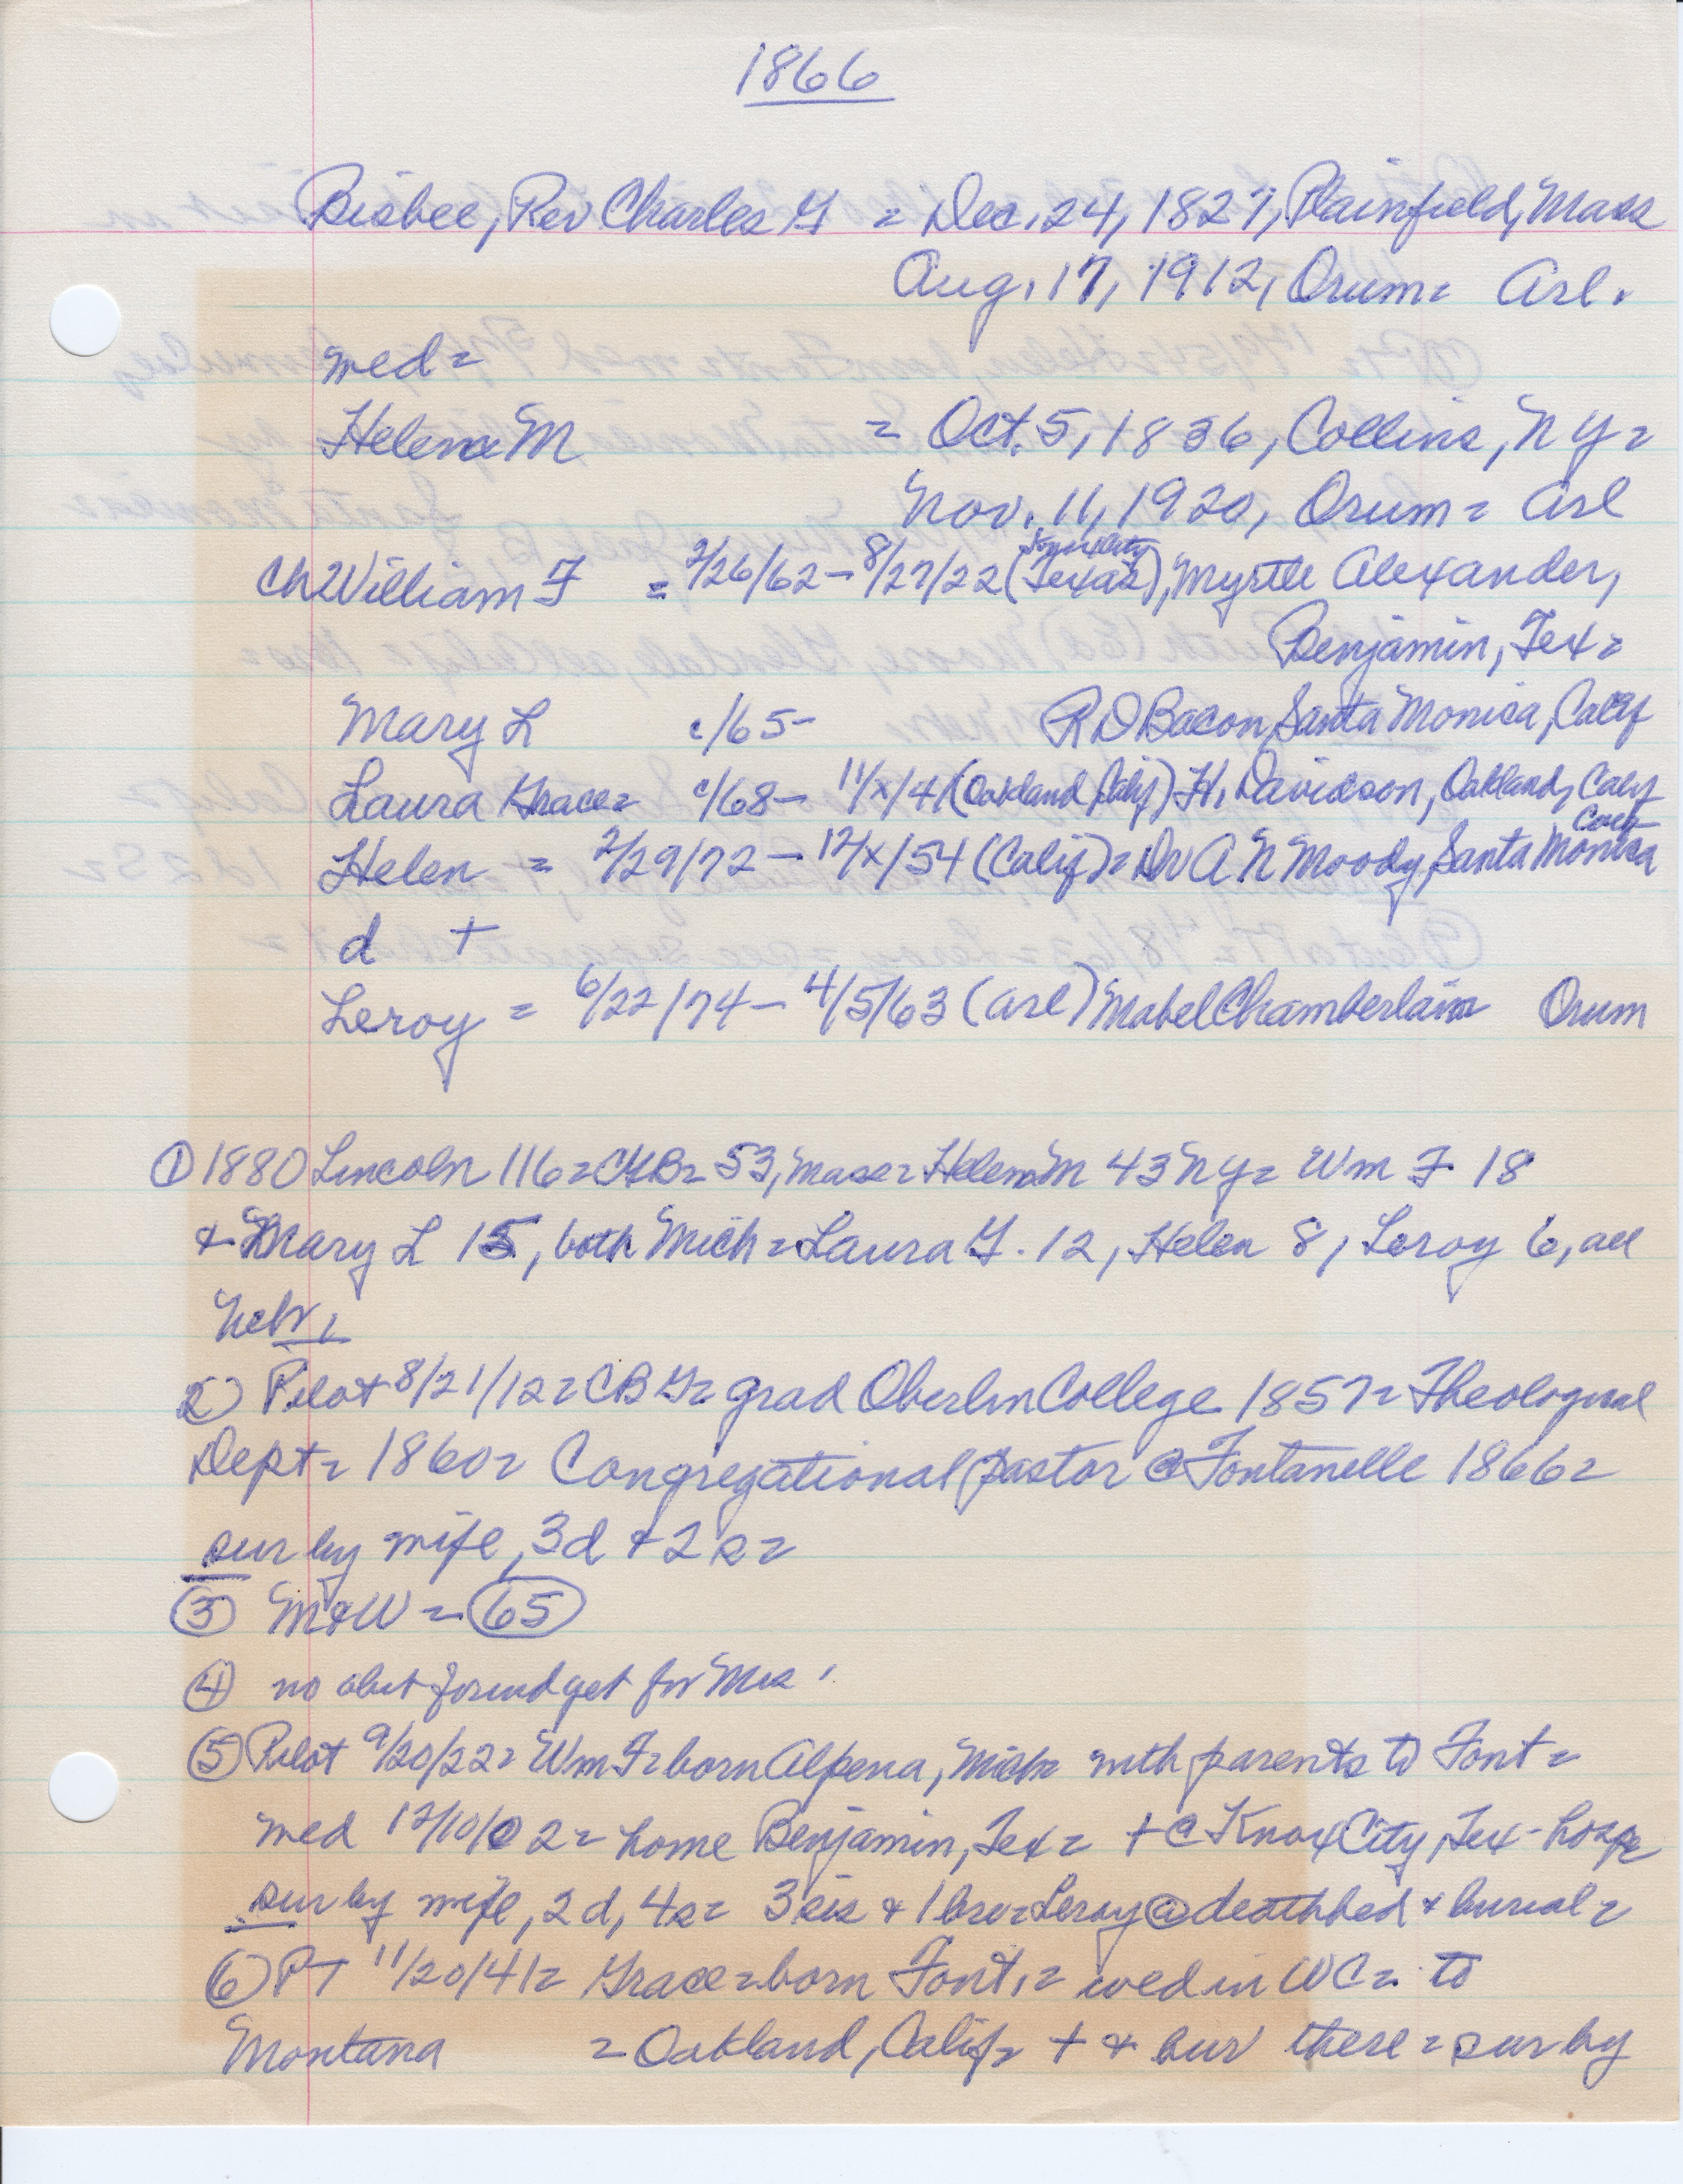 1866
Bisbee, Rev Charles G = Dec. 24, 1827, Plainfield, Mass
Aug. 17, 1912, Orum = Arl.
wed =
Helen M = Oct. 5, 1836, Collins, NY =
Nov. 11, 1920, Orum = Arl
Ch William F = 2/26/62 - 8/27/22 (Knox City Texas), Myrtle Alexander,
Benjamin, Tex =
Mary L c/65 - R D Bacon, Santa Monica, Calif
Laura Grace = c/68 - 11/x/41 (Oakland Calif) H. Davidson, Oakland, Calif
Helen = 2/29/72 - 12/x/54 (Calif) = Dr A N Moody, Santa Monica Calif
d +
Leroy = 6/22/74 - 4/5/63 (Arl) Mabel Chamberlain Orum
① 1880 Lincoln 116 = CGB = 53, Mass = Helen M 43 NY = Wm F 18
+ Mary L 15, both Mich = Laura G. 12, Helen 8, Leroy 6, all
Nebr.
② Pilot 8/21/12 = CBG = grad Oberlin College 1857 = Theological
Dept = 1860 = Congregational pastor @ Fontanelle 1866 =
sur by wife, 3d + 2s =
③ M+W = 65
④ no obit found yet for Mrs.
⑤ Pilot 9/20/22 = Wm F = born Alpena, Mich = with parents to Font =
wed 12/10/02 = home Benjamin, Tex = + @ Knox City, Tex - hosp
sur by wife, 2d, 4s = 3 sis + 1 bro = Leroy @ deathbed + burial =
⑥ PT 11/20/41 = Grace = born Font. = wed in WC = to
Montana = Oakland, Calif = + + bur there = sur by